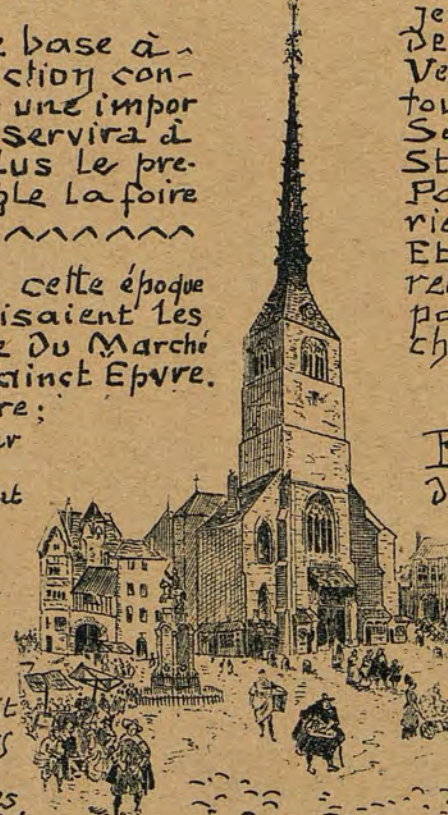 base à
ction con-
une impor
servira à
lus Le pre-
ble La foire
cette époque
isaient les
e Du Marché
ainct Epvre.
re:
ur
nt
t
s
es
je
De
Ve
tou
Sa
St
Po
rie
Et
re
pa
ch